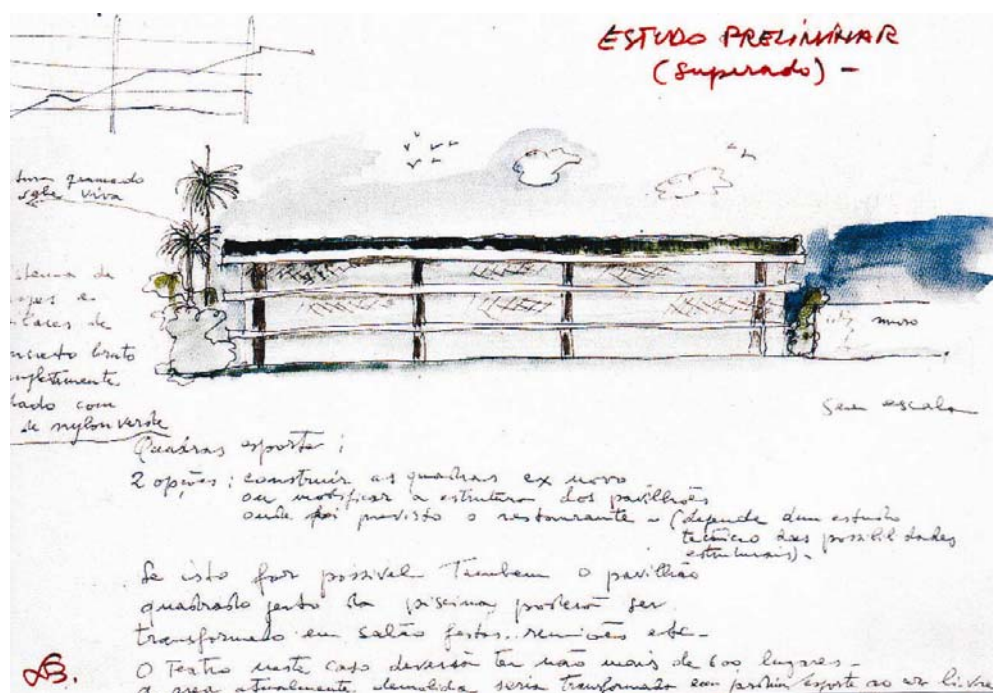 ESTUDO PRELIMINAR
(Superado) -
sebe viva
muro
concreto bruto
completamente
com
de nylon verde
Sem escala
Quadras esporte:
2 opções: construir as quadras ex novo
ou modificar a estrutura dos pavilhões
onde foi previsto o restaurante - (depende dum estudo
técnico das possibilidades
estruturais) -
Se isto for possivel Tambem o pavilhão
quadrado junto da piscina, poderá ser
transformado em salão festas, reuniões etc -
O Teatro neste caso deverá ter não mais de 600 lugares -
a area atualmente demolida seria transformada em esporte ao ar livre
LB.